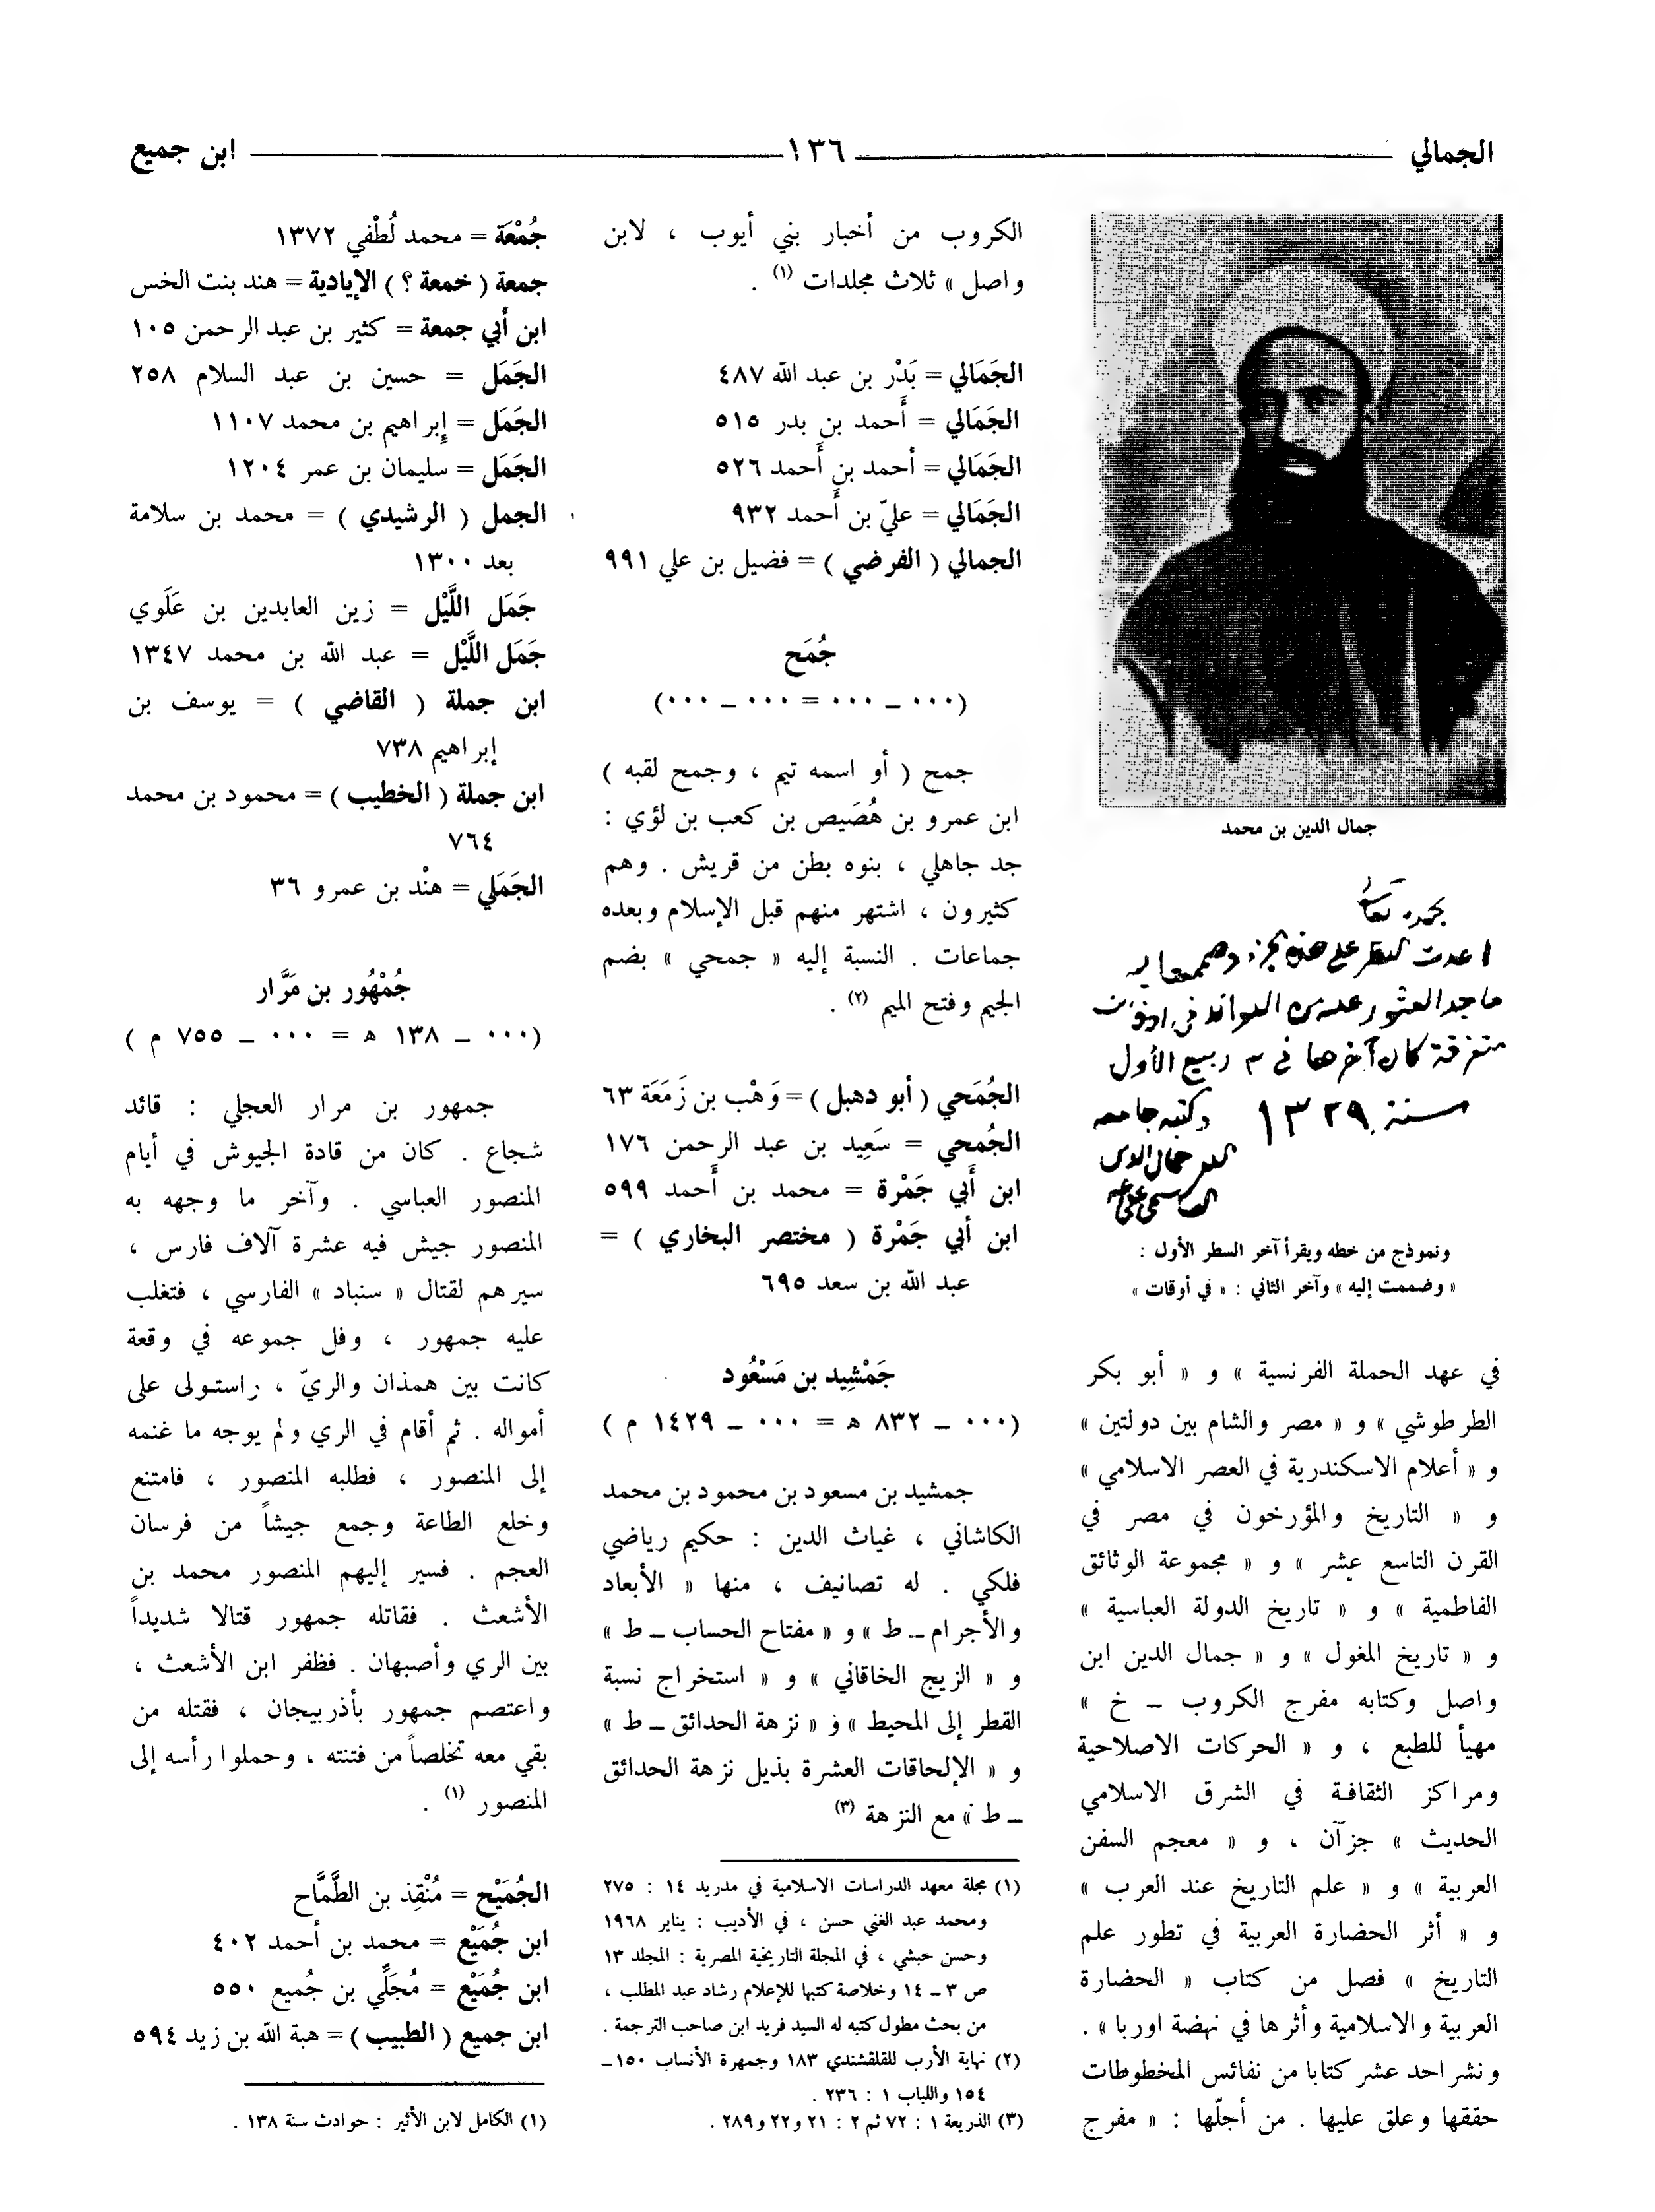 الجمالي
١٣٦
ابن جميع
جمال الدين بن محمد
بحمده تعالى
اعدت النظر على هذه
متفرقة كان آخرها في ٣ ربيع الأول
سنة ١٣٢٩
وكتبه جامعه
جمال الدين
القاسمي
ونموذج من خطه ويقرأ آخر السطر الأول :
« وضممت إليه » وآخر الثاني : « في أوقات »
في عهد الحملة الفرنسية » و « أبو بكر
الطرطوشي » و « مصر والشام بين دولتين »
و « أعلام الاسكندرية في العصر الاسلامي »
و « التاريخ والمؤرخون في مصر في
القرن التاسع عشر » و « مجموعة الوثائق
الفاطمية » و « تاريخ الدولة العباسية »
و « تاريخ المغول » و « جمال الدين ابن
واصل وكتابه مفرج الكروب ــ خ »
مهيأ للطبع ، و « الحركات الاصلاحية
ومراكز الثقافة في الشرق الاسلامي
الحديث » جزآن ، و « معجم السفن
العربية » و « علم التاريخ عند العرب »
و « أثر الحضارة العربية في تطور علم
التاريخ » فصل من كتاب « الحضارة
العربية والاسلامية وأثرها في نهضة اوربا » .
ونشر احد عشر كتابا من نفائس المخطوطات
حققها وعلق عليها . من أجلّها : « مفرج
الكروب من أخبار بني أيوب ، لابن
واصل » ثلاث مجلدات (١) .
الجَمَالي = بَدْر بن عبد الله ٤٨٧
الجَمَالي = أَحمد بن بدر ٥١٥
الجَمَالي = أحمد بن أَحمد ٥٢٦
الجَمَالي = عليّ بن أَحمد ٩٣٢
الجمالي ( الفرضي ) = فضيل بن علي ٩٩١
جُمَح
(٠٠٠ ــ ٠٠٠ = ٠٠٠ ــ ٠٠٠)
جمح ( أو اسمه تيم ، وجمح لقبه )
ابن عمرو بن هُصَيص بن كعب بن لؤي :
جد جاهلي ، بنوه بطن من قريش . وهم
كثيرون ، اشتهر منهم قبل الإسلام وبعده
جماعات . النسبة إليه « جمحي » بضم
الجيم وفتح الميم (٢) .
الجُمَحي ( أبو دهبل ) = وَهْب بن زَمَعَة ٦٣
الجُمحي = سَعِيد بن عبد الرحمن ١٧٦
ابن أَبي جَمْرة = محمد بن أَحمد ٥٩٩
ابن أبي جَمْرة ( مختصر البخاري ) =
عبد الله بن سعد ٦٩٥
جَمْشِيد بن مَسْعُود
(٠٠٠ ــ ٨٣٢ ه = ٠٠٠ ــ ١٤٢٩ م )
جمشيد بن مسعود بن محمود بن محمد
الكاشاني ، غياث الدين : حكيم رياضي
فلكي . له تصانيف ، منها « الأبعاد
والأجرام ــ ط » و « مفتاح الحساب ــ ط »
و « الزيج الخاقاني » و « استخراج نسبة
القطر إلى المحيط » و « نزهة الحدائق ــ ط »
و « الإلحاقات العشرة بذيل نزهة الحدائق
ــ ط » مع النزهة (٣)
(١) مجلة معهد الدراسات الاسلامية في مدريد ١٤ : ٢٧٥
ومحمد عبد الغني حسن ، في الأديب : يناير ١٩٦٨
وحسن حبشي ، في المجلة التاريخية المصرية : المجلد ١٣
ص ٣ ــ ١٤ وخلاصة كتبها للإعلام رشاد عبد المطلب ،
من بحث مطول كتبه له السيد فريد ابن صاحب الترجمة .
(٢) نهاية الأرب للقلقشندي ١٨٣ وجمهرة الأنساب ١٥٠ ــ
١٥٤ واللباب ١ : ٢٣٦ .
(٣) الذريعة ١ : ٧٢ ثم ٢ : ٢١ و٢٢ و٢٨٩ .
جُمْعَة = محمد لُطْفي ١٣٧٢
جمعة ( خمعة ؟ ) الإيادية = هند بنت الخس
ابن أَبي جمعة = كثير بن عبد الرحمن ١٠٥
الجَمَل = حسين بن عبد السلام ٢٥٨
الجَمَل = إبراهيم بن محمد ١١٠٧
الجَمَل = سليمان بن عمر ١٢٠٤
الجمل ( الرشيدي ) = محمد بن سلامة
بعد ١٣٠٠
جَمَل اللَّيْل = زين العابدين بن عَلَوي
جَمَل اللَّيْل = عبد الله بن محمد ١٣٤٧
ابن جملة ( القاضي ) = يوسف بن
إبراهيم ٧٣٨
ابن جملة ( الخطيب ) = محمود بن محمد
٧٦٤
الجَمَلي = هنْد بن عمرو ٣٦
جُمْهُور بن مَرَّار
(٠٠٠ ــ ١٣٨ ه = ٠٠٠ ــ ٧٥٥ م )
جمهور بن مرار العجلي : قائد
شجاع . كان من قادة الجيوش في أيام
المنصور العباسي . وآخر ما وجهه به
المنصور جيش فيه عشرة آلاف فارس ،
سيرهم لقتال « سنباد » الفارسي ، فتغلب
عليه جمهور ، وفل جموعه في وقعة
كانت بين همذان والريّ ، واستولى على
أمواله . ثم أقام في الري ولم يوجه ما غنمه
إلى المنصور ، فطلبه المنصور ، فامتنع
وخلع الطاعة وجمع جيشاً من فرسان
العجم . فسير إليهم المنصور محمد بن
الأشعث . فقاتله جمهور قتالا شديداً
بين الري وأصبهان . فظفر ابن الأشعث ،
واعتصم جمهور بأذربيجان ، فقتله من
بقي معه تخلصاً من فتنته ، وحملوا رأسه إلى
المنصور (١) .
الجُمَيْح = مُنْقِذ بن الطَّمَّاح
ابن جُمَيْع = محمد بن أحمد ٤٠٢
ابن جُمَيْع = مُجَلِّي بن جُميع ٥٥٠
ابن جميع ( الطبيب ) = هبة الله بن زيد ٥٩٤
(١) الكامل لابن الأثير : حوادث سنة ١٣٨ .